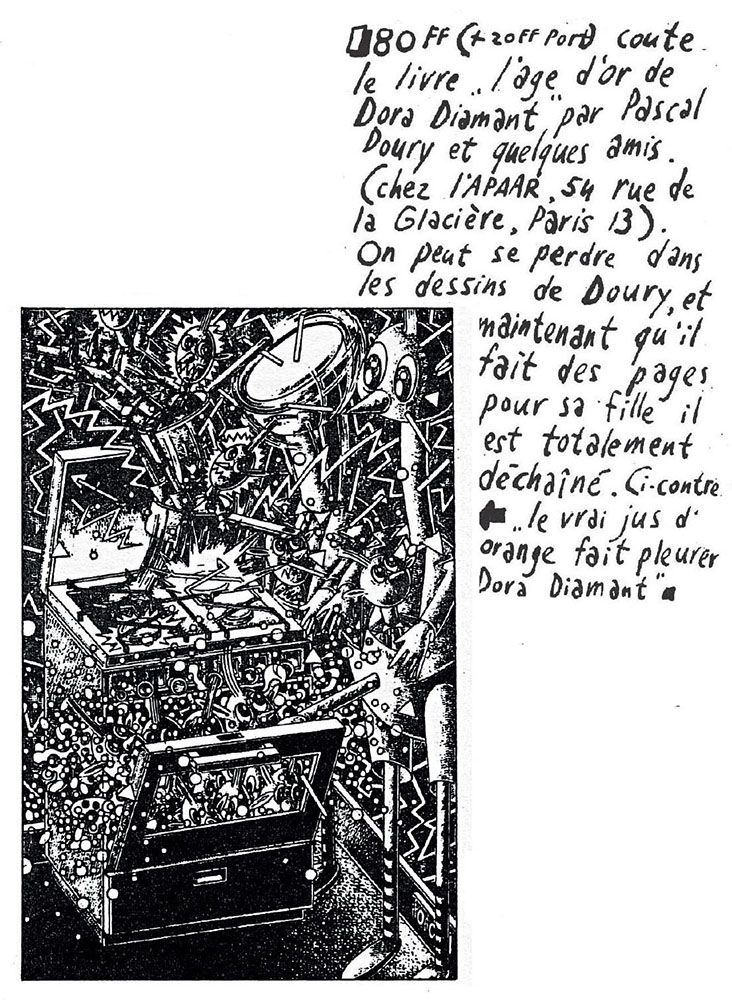 80 FF (+ 20 FF Port) coute
le livre „l'age d'or de
Dora Diamant" par Pascal
Doury et quelques amis.
(chez l'APAAR, 54 rue de
la Glacière, Paris 13).
On peut se perdre dans
les dessins de Doury, et
maintenant qu'il
fait des pages
pour sa fille il
est totalement
déchaîné. Ci-contre
„le vrai jus d'
orange fait pleurer
Dora Diamant"